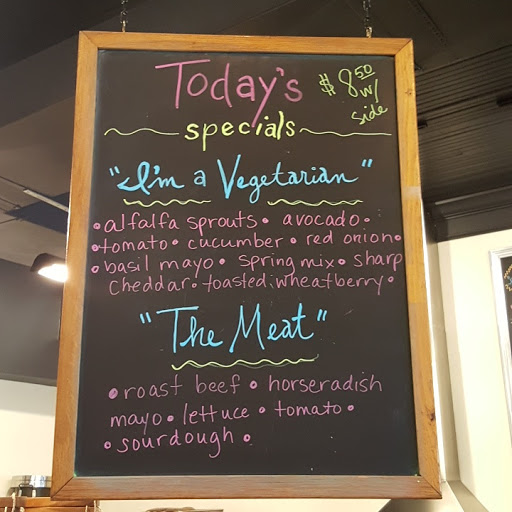 Today's
$8.50
w/
side
specials
"I'm a Vegetarian"
• alfalfa sprouts • avocado •
• tomato • cucumber • red onion •
• basil mayo • spring mix • sharp
cheddar • toasted wheatberry •
"The Meat"
• roast beef • horseradish
mayo • lettuce • tomato •
• sourdough •